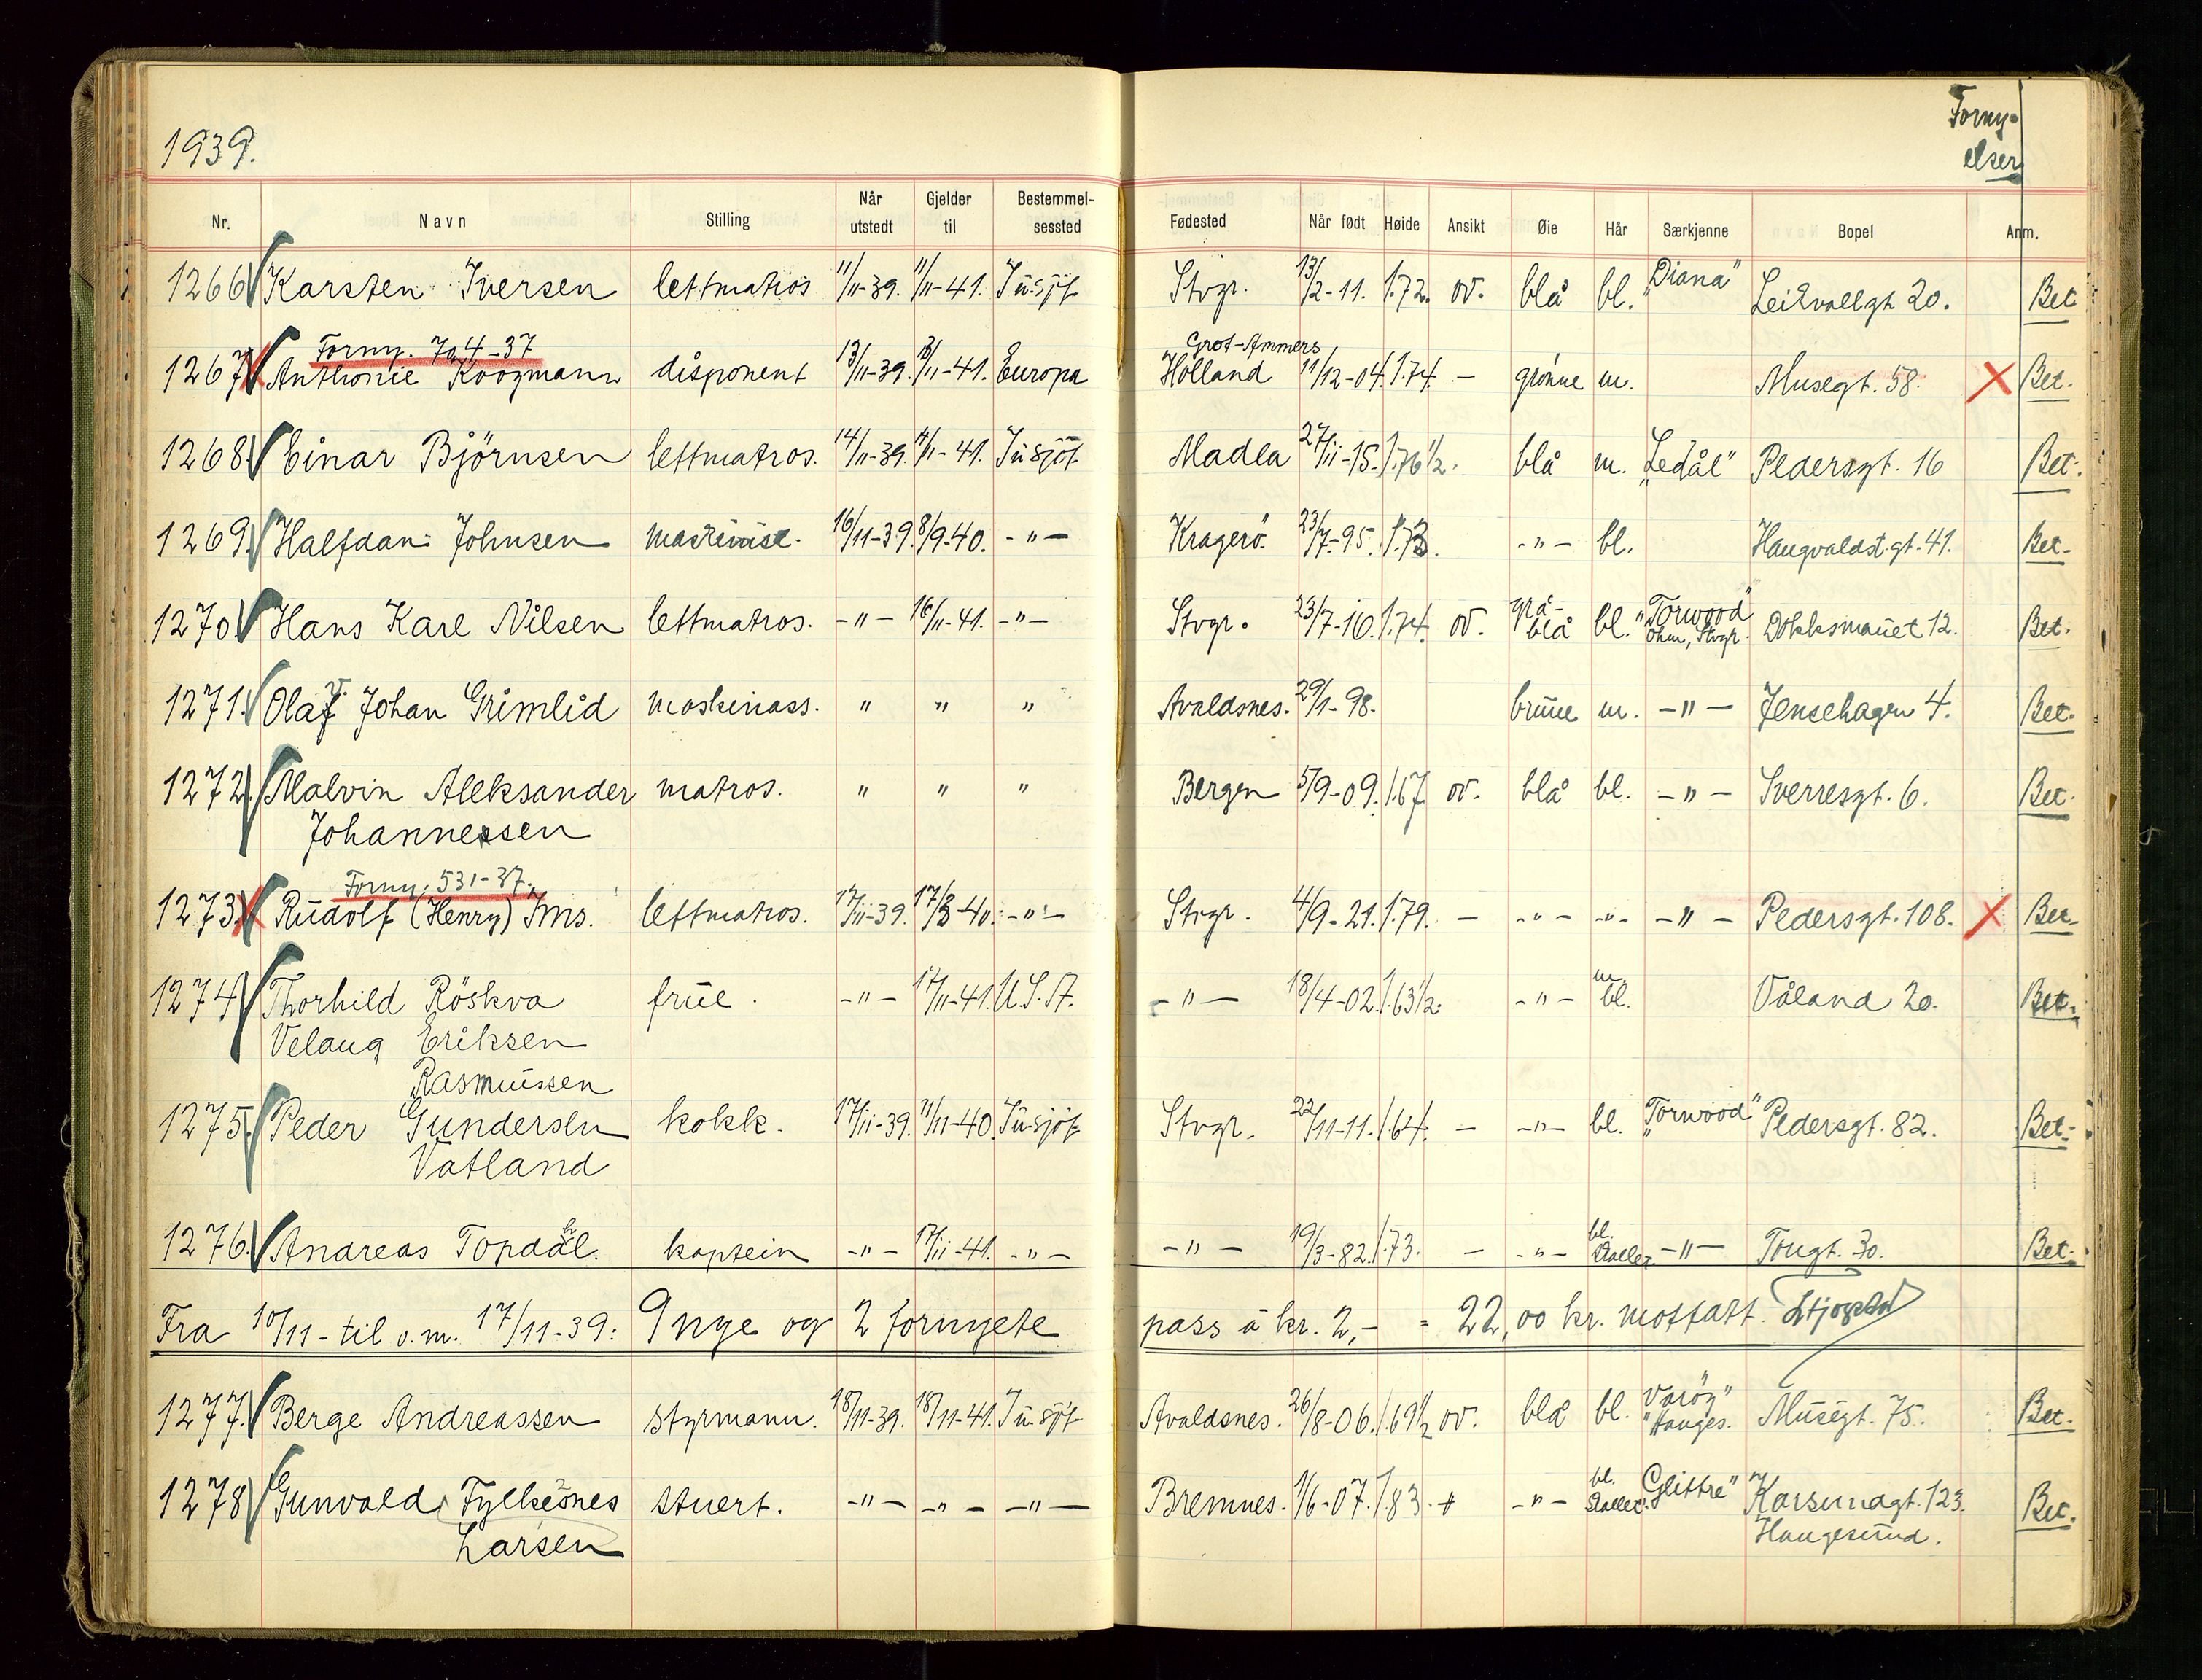 1939.
Forny-
elser
Nr. Navn Stilling Når utstedt Gjelder til Bestemmel-sessted Fødested Når født Høide Ansikt Øie Hår Særkjenne Bopel Anm.
1266 Karsten Iversen lettmatros 11/11-39. 11/11-41. Stvgr. 13/2-11. 1.72. ov. blå bl. "Diana" 20. Bet
Forny. 704-37 Grot-Ammers
1267 Anthonie Koogmann disponent 13/11-39. 13/11-41. Europa Holland 11/12-04. 1.74. — grønne m. Musegt. 58. X Bet.
1268 Einar Björnsen lettmatros. 14/11-39. Madla 27/11-15. 1.76 1/2. blå m. "Ledål" Pedersgt. 16 Bet.
1269. Halfdan Johnsen maskinist. 16/11-39. 8/9-40. -"- Kragerö. 23/7-95. 1.73. -"- bl. Haugvaldst.gt. 41. Bet.
1270. Hans Karl Nilsen lettmatros. -"- 16/11-41. -"- Stvgr. 23/7-16. 1.74. ov. grå-blå bl. "Torwood" Stvgr. Dokksmauet 12. Bet.
1271. Olaf Johan Grimlid maskinass. " " " Avaldsnes. 29/1-98. brune m. -"- Jensehagen 4. Bet.
1272. Malvin Aleksander matros. " " " Bergen 5/9-09. 1.67. ov. blå bl. -"- Sverresgt. 6. Bet.
Johannessen
Forny. 531-37.
1273 Rudolf (Henry) Ims. lettmatros. 17/11-39. 17/8-40. -"- Stvgr. 4/9-21. 1.79. — -"- -"- -"- Pedersgt. 108. X Bet
1274 Thorhild Röskva frue. -"- 17/11-41. U.S.A. -"- 18/4-02. 1.63 1/2. -"- m bl. Våland 20. Bet.
Velaug Eriksen
Rasmussen
1275. Peder Gundersen kokk. 17/11-39. 11/11-40. Stvgr. 22/11-11. 1.64. — -"- bl. "Torwood" Pedersgt. 82. Bet.
Vatland
1276. Andreas Topdal. kaptein -"- 17/11-41. -"- -"- 19/3-82. 1.73. — -"- bl. -"- Tougt. 30. Bet.
Fra 10/11 - til o.m. 17/11-39: 9 nye og 2 fornyete pass à kr. 2,- = 22,00 kr. mottatt.
1277. Berge Andreassen styrmann. 18/11-39. 18/11-41. Avaldsnes. 26/8-06. 1.69 1/2 ov. blå bl. "Varöy" Hauges. Musegt. 75. Bet.
1278 Gunvald Fylkesnes stuert. -"- -"- -"- Bremnes. 1/6-07. 1.83. -"- bl. "Glittre" Karsundgt. 123. Bet.
Larsen Haugesund.